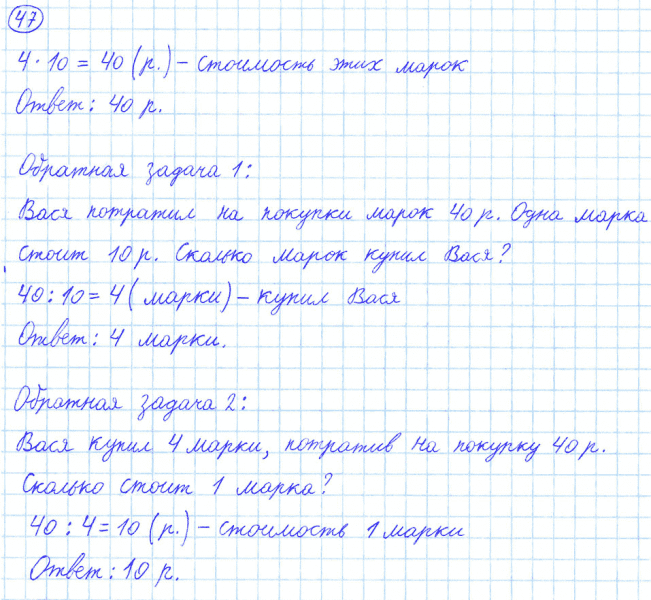 47
4 · 10 = 40 (р.) – стоимость этих марок
Ответ: 40 р.
Обратная задача 1:
Вася потратил на покупки марок 40 р. Одна марка
стоит 10 р. Сколько марок купил Вася?
40 : 10 = 4 (марки) – купил Вася
Ответ: 4 марки.
Обратная задача 2:
Вася купил 4 марки, потратив на покупку 40 р.
Сколько стоит 1 марка?
40 : 4 = 10 (р.) – стоимость 1 марки
Ответ: 10 р.